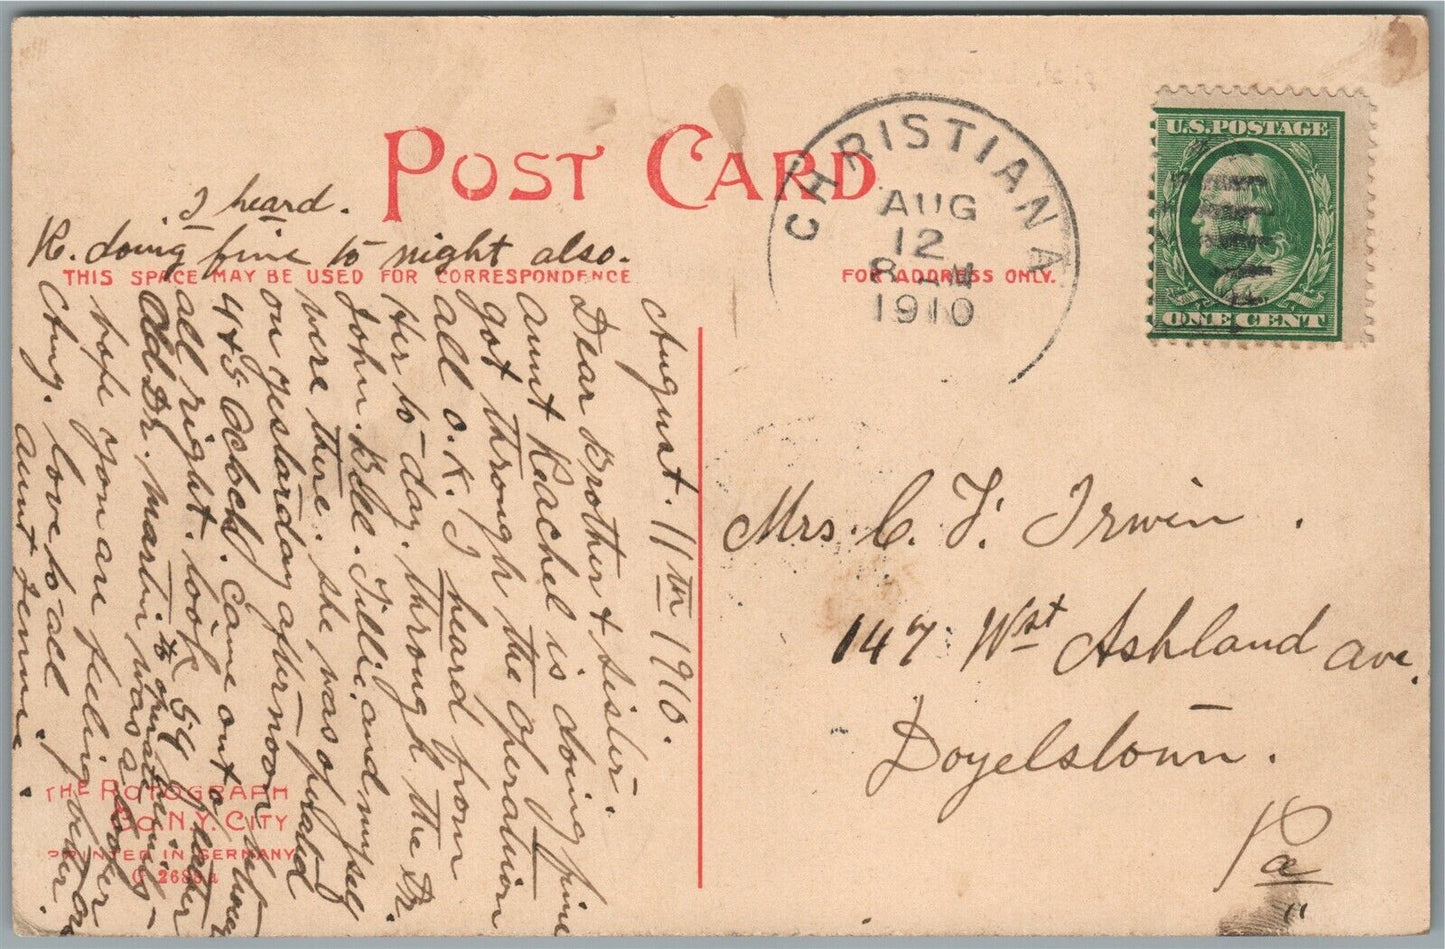 POST CARD
I heard.
R. doing fine to night also.
THIS SPACE MAY BE USED FOR CORRESPONDENCE
FOR ADDRESS ONLY.
August. 11th 1910.
Dear Brother & Sister.
Aunt Rachel is doing fine
got through the operation
all O.K. I heard from
Her to-day. through the Dr.
John. Bell. Tillie. and myself
were there. she was operated
on yestarday afternoon between
4 & 5 Oclock. Came out of
all right. took 59
Old Dr. Martin was a looker
hope you are feeling better
love to all
Aunt Jennie.
THE ROTOGRAPH
CO. N.Y. CITY
PRINTED IN GERMANY
CHRISTIANA
AUG
12
8 AM
1910
U.S. POSTAGE
ONE CENT
Mrs. C. F. Irwin.
147 West Ashland Ave.
Doyelstown.
Pa